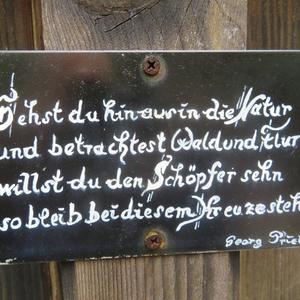 Gehst du hinaus in die Natur
und betrachtest Wald und Flur
willst du den Schöpfer sehn
so bleib bei diesem Kreuze steh
Georg